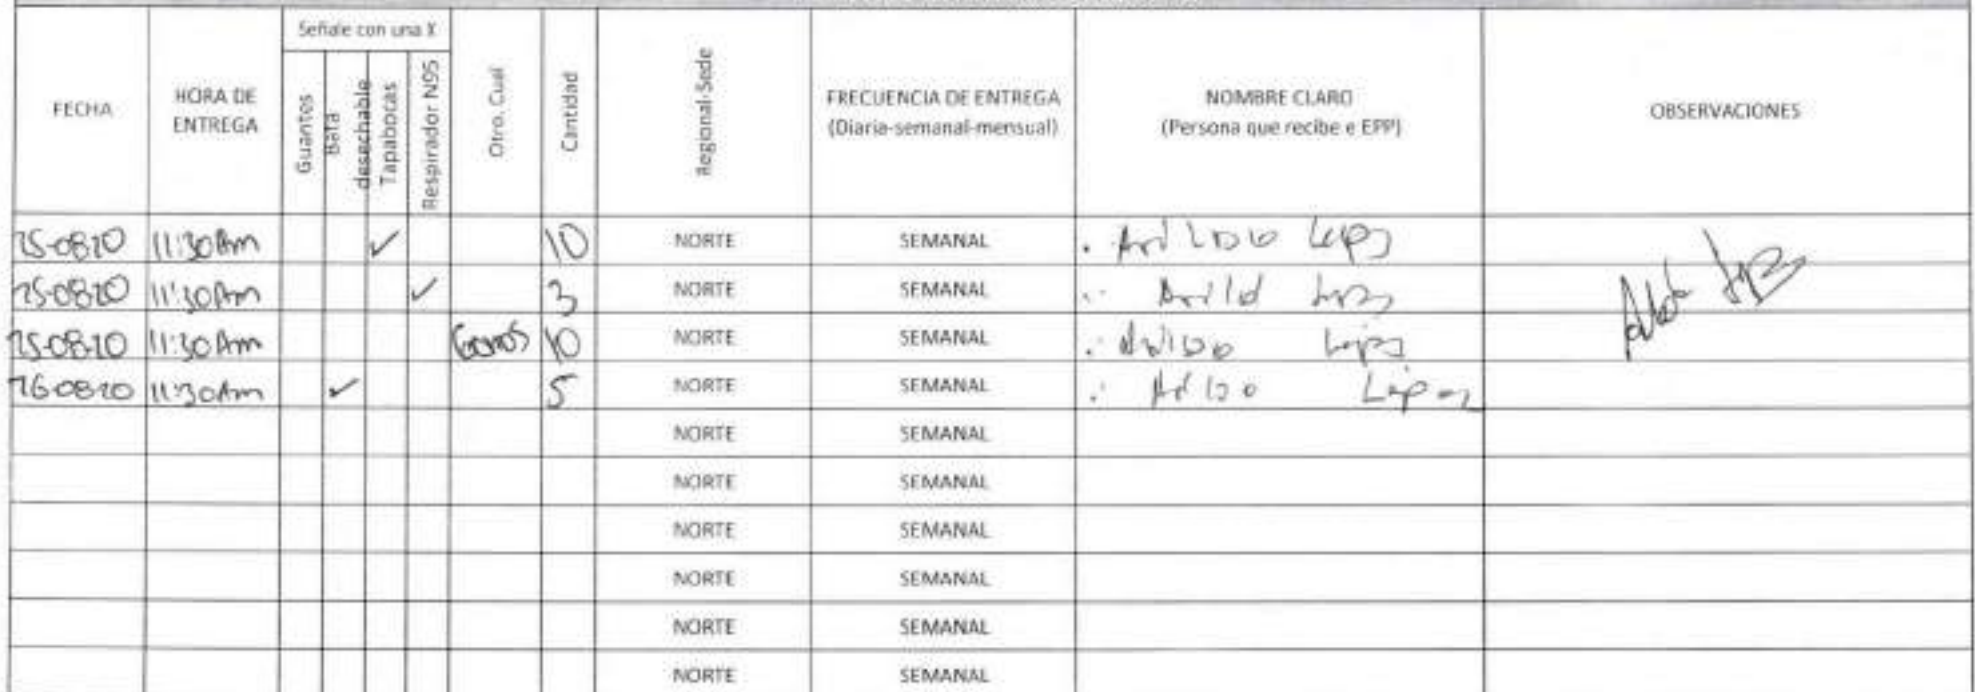 Señale con una X
FECHA
HORA DE
ENTREGA
Guantes
Bata
desechable
Tapabocas
Respirador N95
Otro. Cual
Cantidad
Regional-Sede
FRECUENCIA DE ENTREGA
(Diaria-semanal-mensual)
NOMBRE CLARO
(Persona que recibe e EPP)
OBSERVACIONES
25-08-20 11:30Am ✓ 10 NORTE SEMANAL
25-08-20 11:30Am ✓ 3 NORTE SEMANAL
25-08-20 11:30Am Gorros 10 NORTE SEMANAL
26-08-20 11:30Am ✓ 5 NORTE SEMANAL Lopez
NORTE SEMANAL
NORTE SEMANAL
NORTE SEMANAL
NORTE SEMANAL
NORTE SEMANAL
NORTE SEMANAL